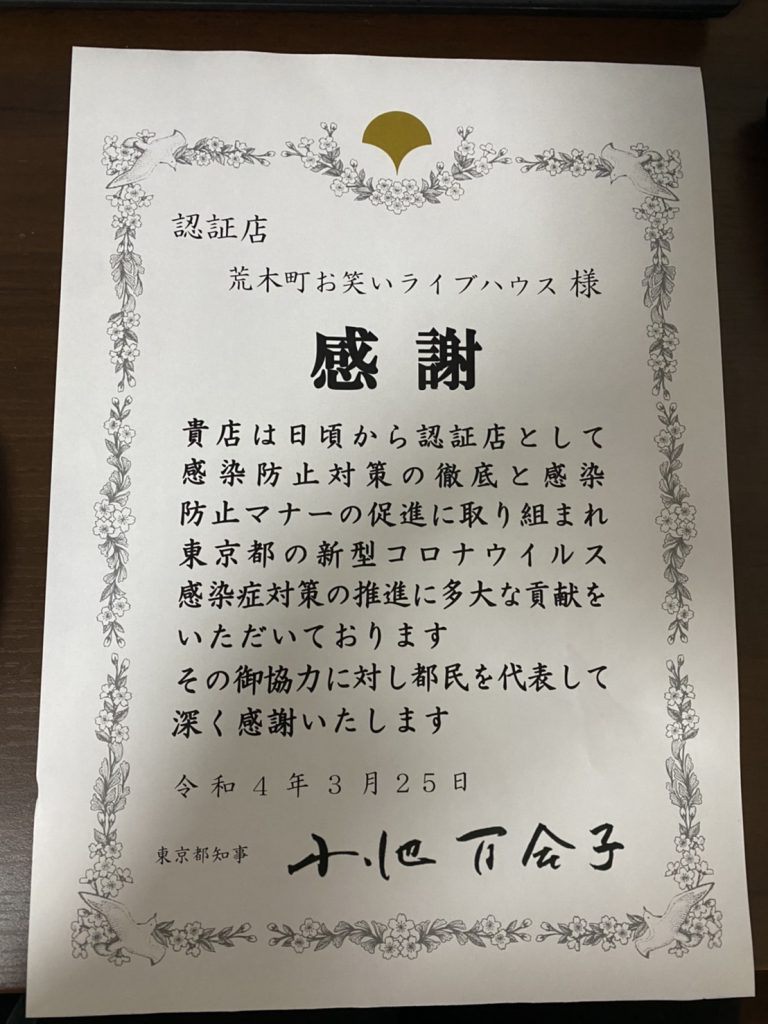 認証店
荒木町お笑いライブハウス 様
感謝
貴店は日頃から認証店として
感染防止対策の徹底と感染
防止マナーの促進に取り組まれ
東京都の新型コロナウイルス
感染症対策の推進に多大な貢献を
いただいております
その御協力に対し都民を代表して
深く感謝いたします
令和4年3月25日
東京都知事 小池百合子